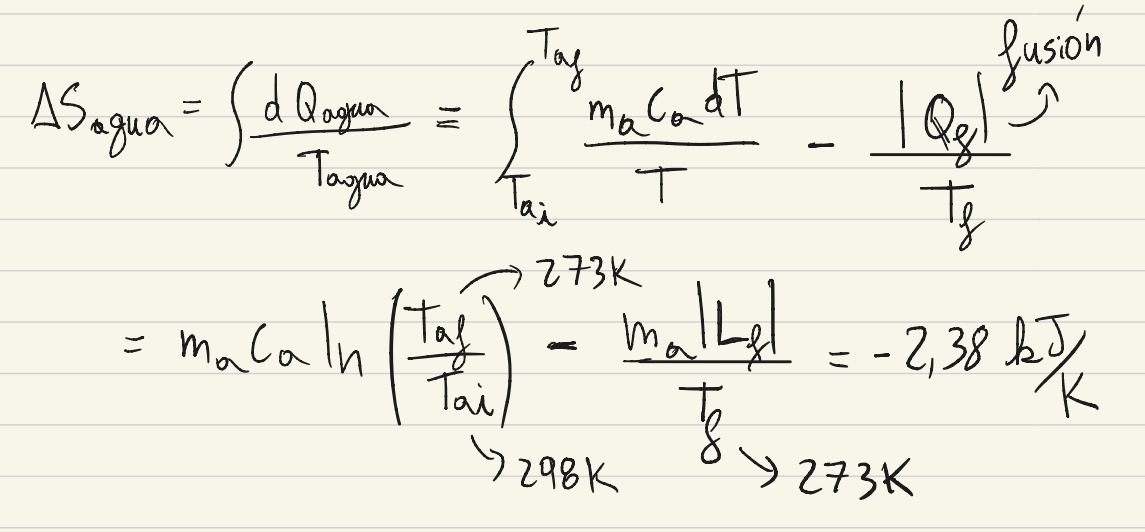 fusión
ΔS_agua = ∫ dQ_agua / T_agua = ∫_{T_ai}^{T_af} m_a c_a dT / T - |Q_f| / T_f
273K
= m_a c_a ln (T_af / T_ai) - m_a |L_f| / T_f = -2,38 kJ/K
298K 273K